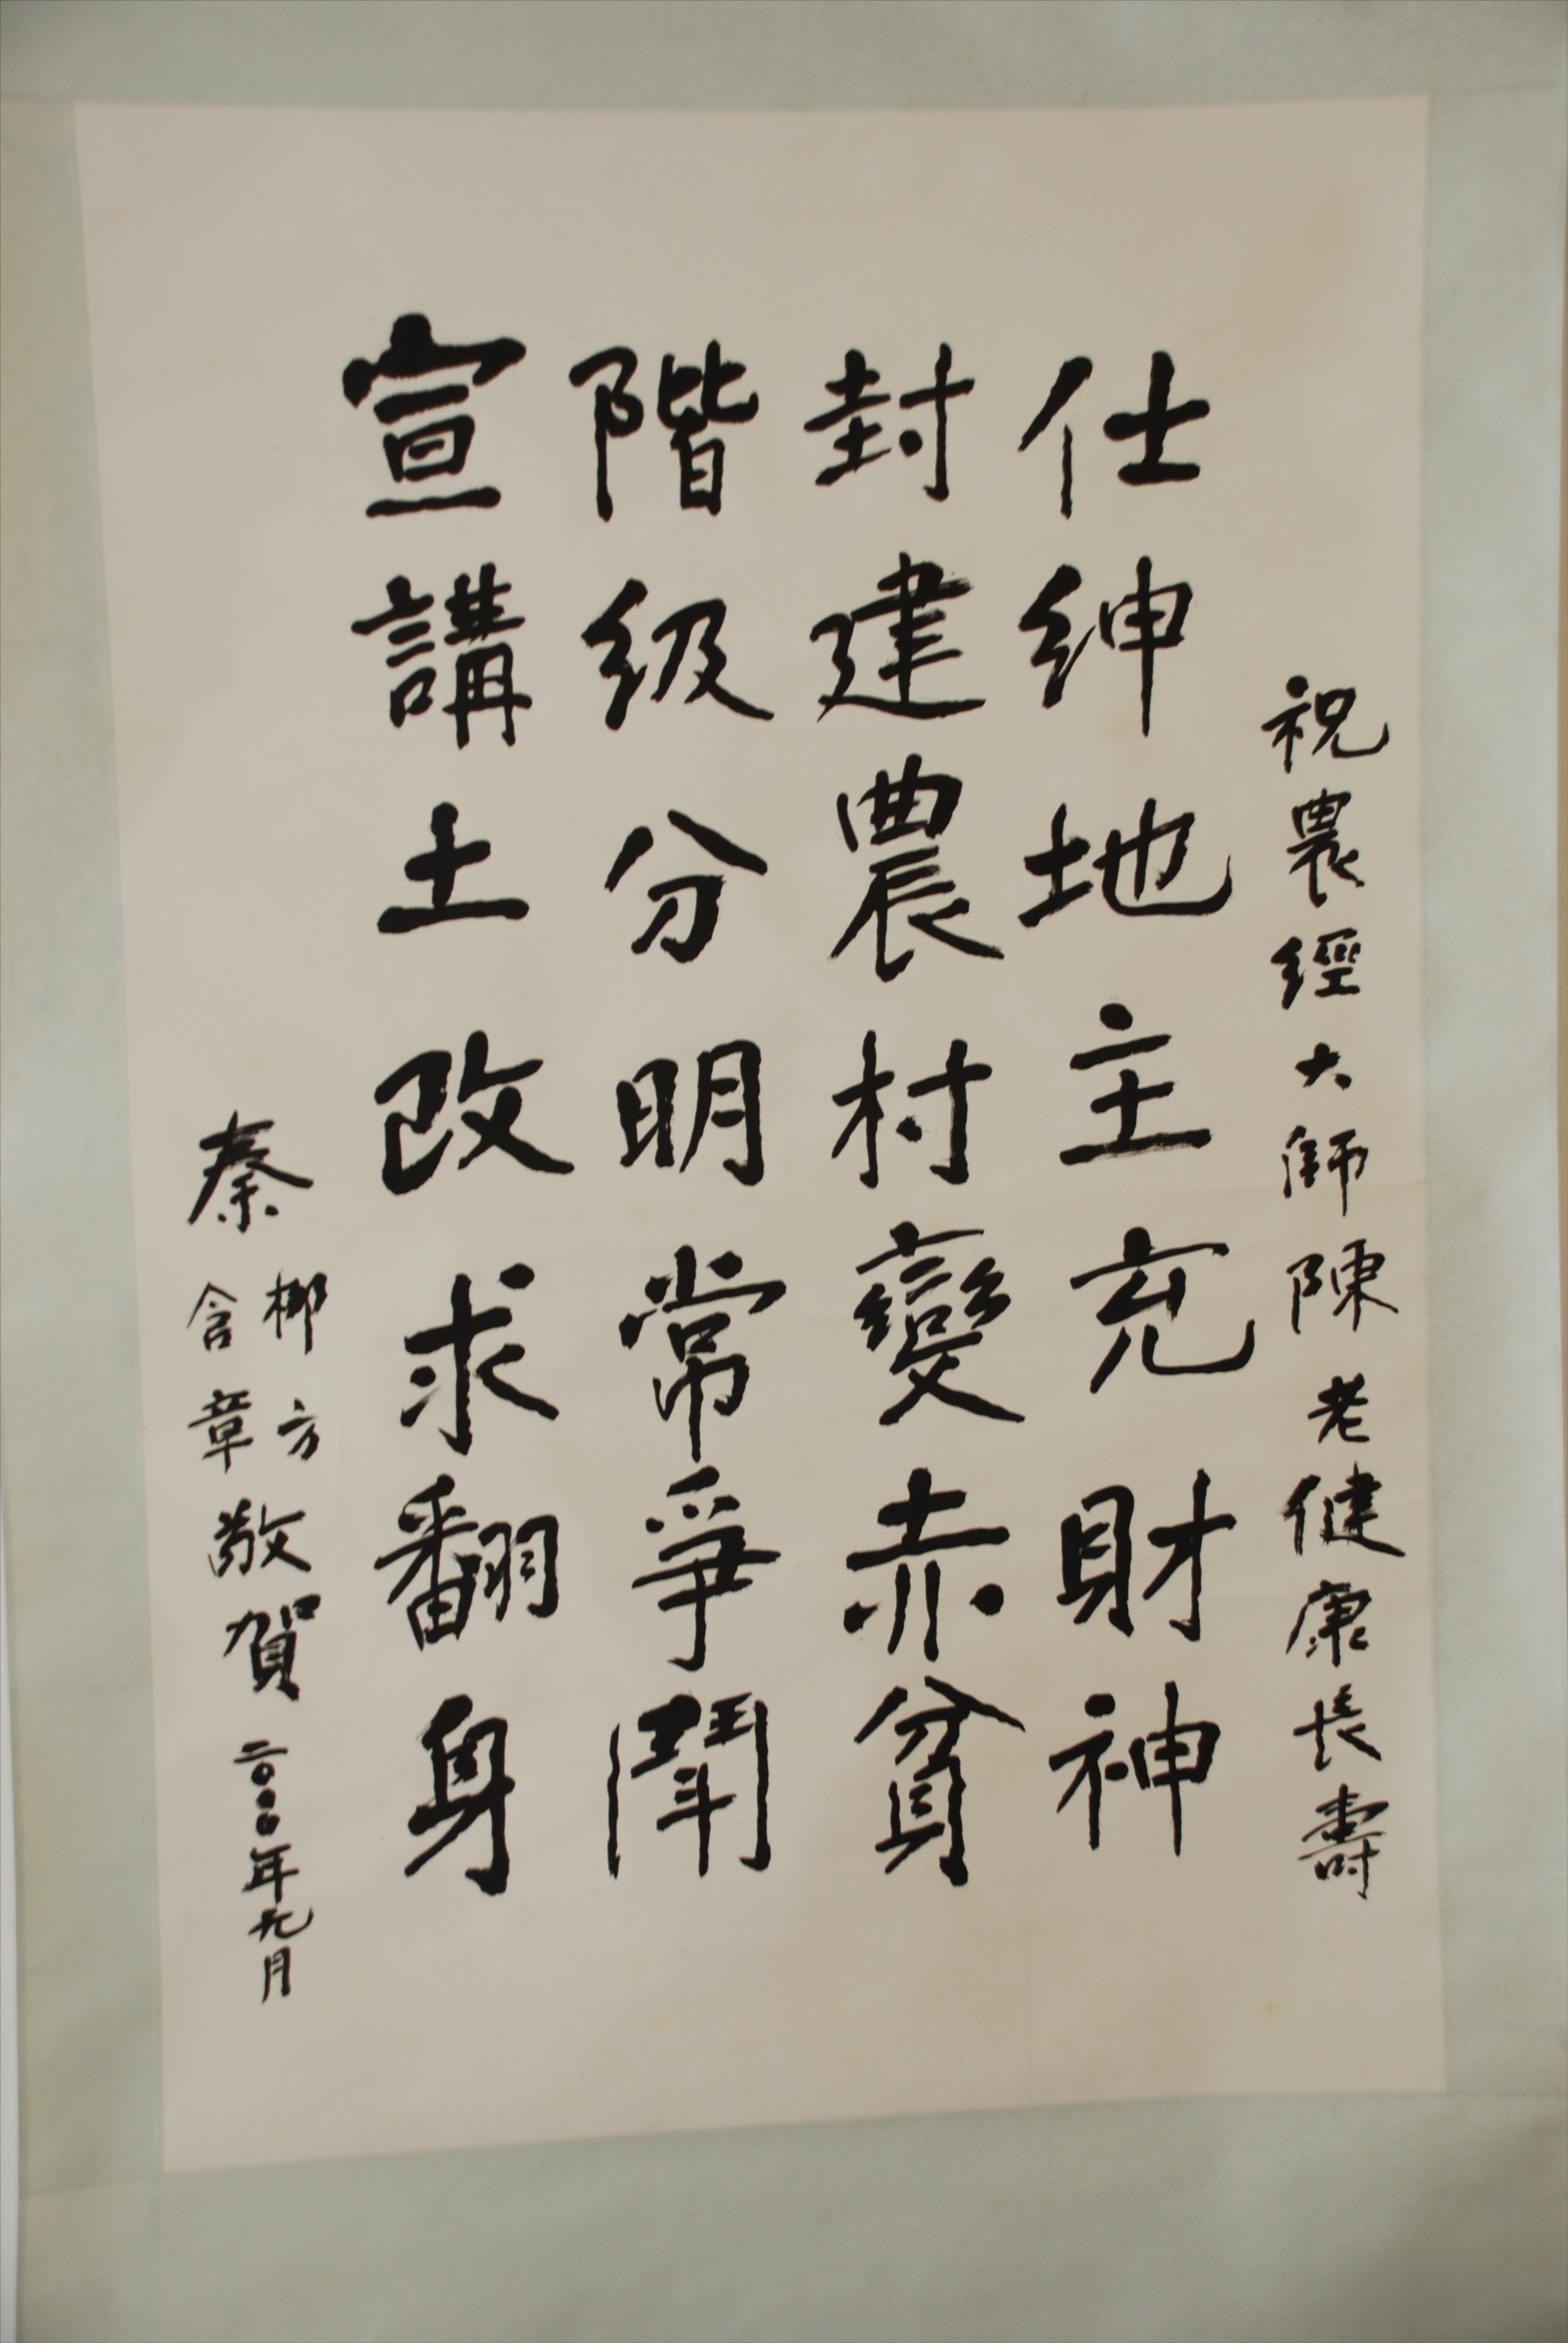 祝農經大師陳老健康長壽
仕紳地主充財神
封建農村變赤貧
階级分明常爭鬪
宣講土改求翻身
秦柳方
含章
敬賀
二〇〇〇年九月